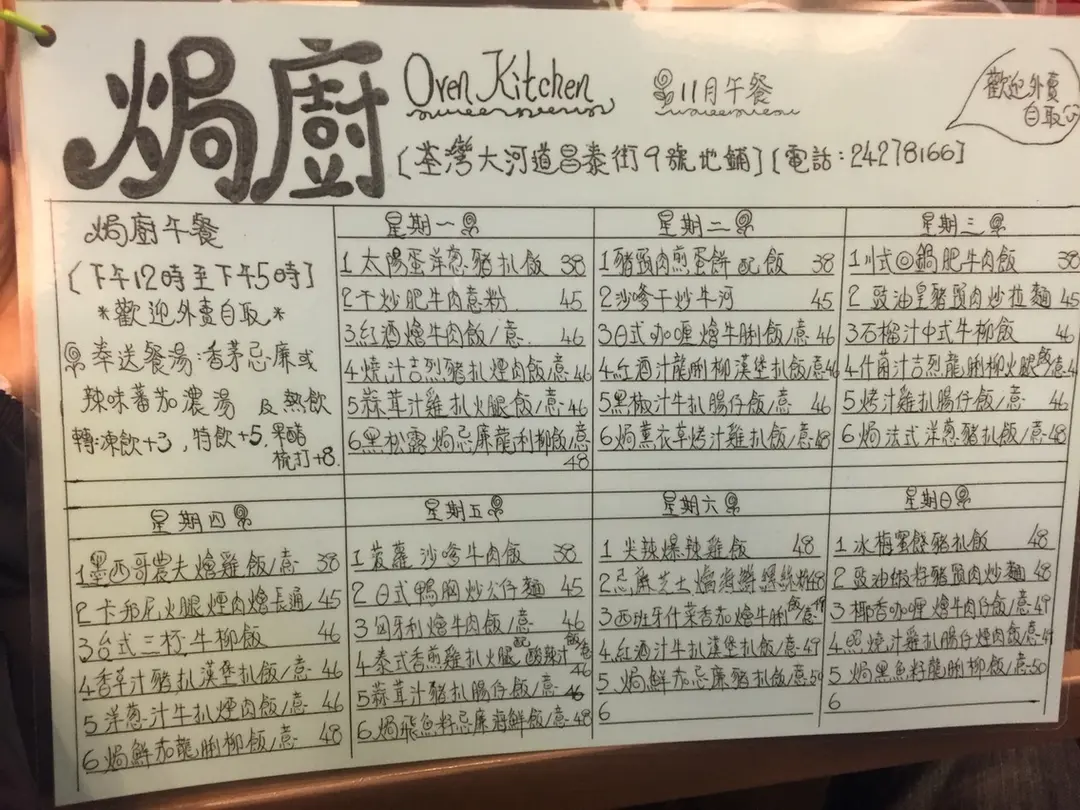 焗廚
Oven Kitchen
11月午餐
歡迎外賣
自取
[荃灣大河道昌泰街9號地鋪] [電話:24278166]
焗廚午餐
[下午12時至下午5時]
*歡迎外賣自取*
奉送餐湯:香茅忌廉或
辣味蕃茄濃湯 及熱飲
轉凍飲+3,特飲+5,果醋
梳打+8.
星期一
1 太陽蛋洋葱豬扒飯 38
2 干炒肥牛肉意粉 45
3 紅酒燴牛肉飯/意 46
4 燒汁吉烈豬扒煙肉飯/意 46
5 蒜茸汁雞扒火腿飯/意 46
6 黑松露焗忌廉龍利柳飯/意
48
星期二
1 豬頸肉煎蛋餅配飯 38
2 沙嗲干炒牛河 45
3 日式咖喱燴牛脷飯/意 46
4 紅酒汁龍脷柳漢堡扒飯/意 46
5 黑椒汁牛扒腸仔飯/意 46
6 焗薰衣草烤汁雞扒飯/意 48
星期三
1 川式回鍋肥牛肉飯 38
2 豉油皇豬頸肉炒拉麵 45
3 石榴汁中式牛柳飯 46
4 什菌汁吉烈龍脷柳火腿飯/意
5 烤汁雞扒腸仔飯/意 46
6 焗法式洋葱豬扒飯/意 48
星期四
1 墨西哥農夫燴雞飯/意 38
2 卡邦尼火腿煙肉燴長通 45
3 台式三杯牛柳飯 46
4 香草汁豬扒漢堡扒飯/意 46
5 洋葱汁牛扒煙肉飯/意 46
6 焗鮮茄龍脷柳飯/意 48
星期五
1 菠蘿沙嗲牛肉飯 38
2 日式鴨胸炒公仔麵 45
3 匈牙利燴牛肉飯/意 46
4 泰式香煎雞扒火腿配酸辣汁飯/意 46
5 蒜茸汁豬扒腸仔飯/意 46
6 焗飛魚籽忌廉海鮮飯/意 48
星期六
1 尖辣爆辣雞飯 48
2 忌廉芝士燴海鮮螺絲粉 48
3 西班牙什菜香茄燴牛脷飯/意
4 紅酒汁牛扒漢堡扒飯/意 49
5 焗鮮茄忌廉豬扒飯/意 50
6
星期日
1 冰梅蜜餞豬扒飯 48
2 豉油椒籽豬頸肉炒麵 48
3 椰香咖喱燴牛肉仔飯/意 49
4 照燒汁雞扒腸仔煙肉飯/意 49
5 焗黑魚籽龍脷柳飯/意 50
6